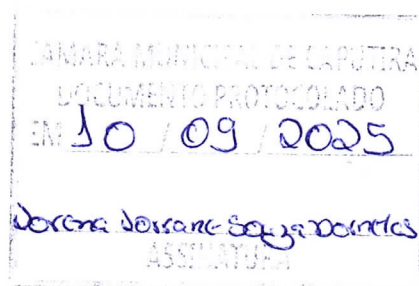 CÂMARA MUNICIPAL DE CAPUTIRA
DOCUMENTO PROTOCOLADO
EM 10 / 09 / 2025
Souza Dornelas
ASSINATURA